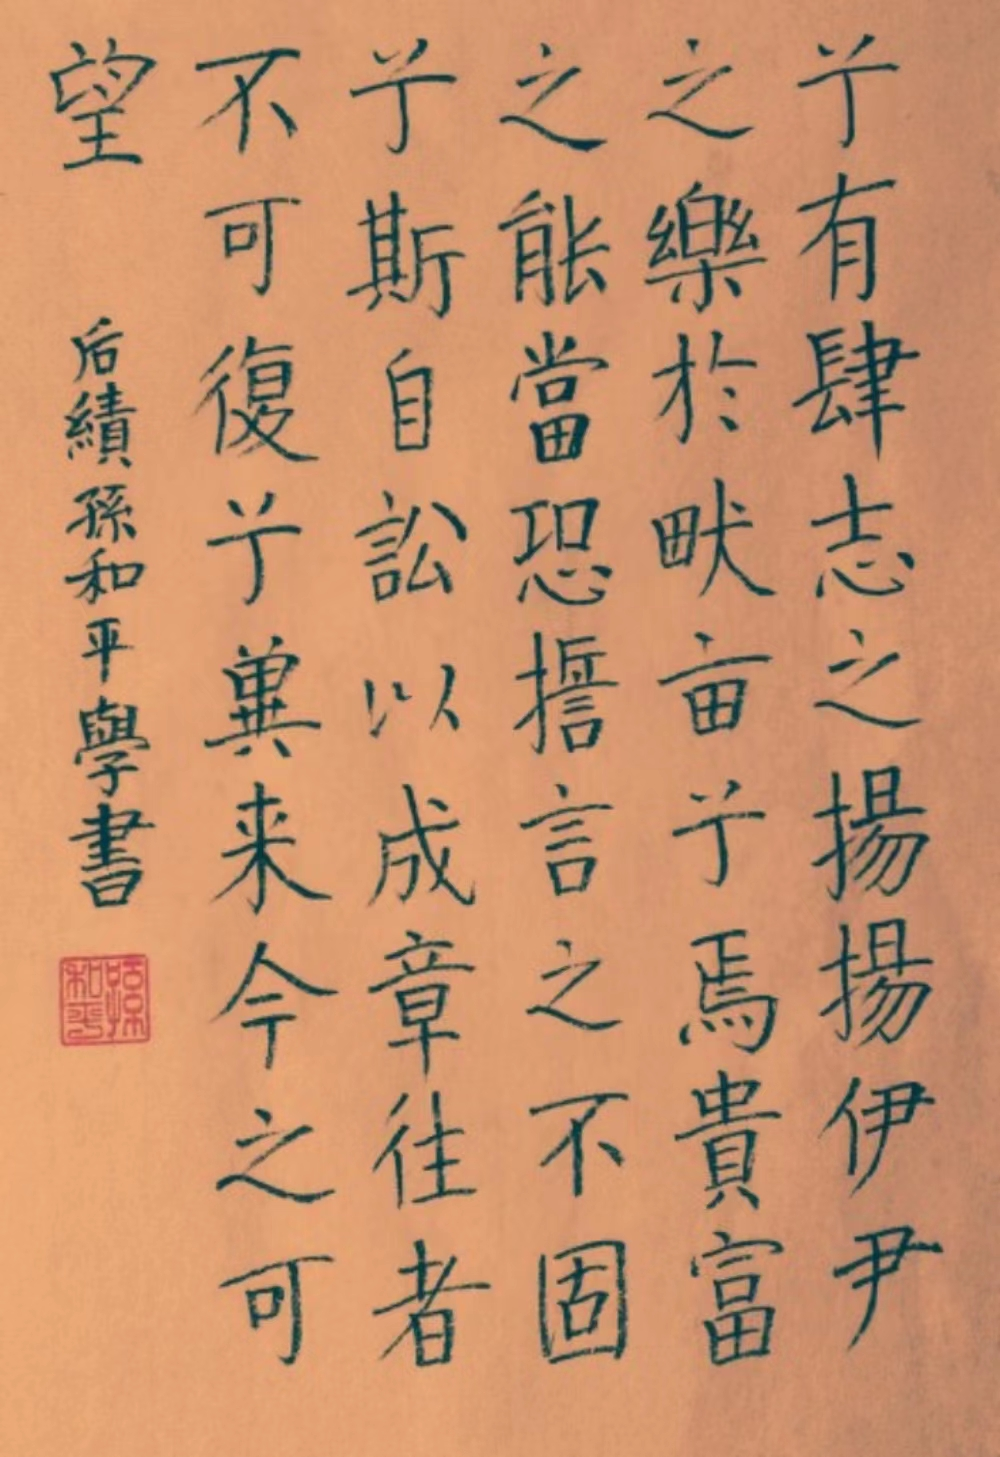 兮有肆志之揚揚伊尹
之樂於畎亩兮焉貴富
之能當恐誓言之不固
兮斯自訟以成章往者
不可復兮冀来今之可
望
后績孫和平學書
孫和平